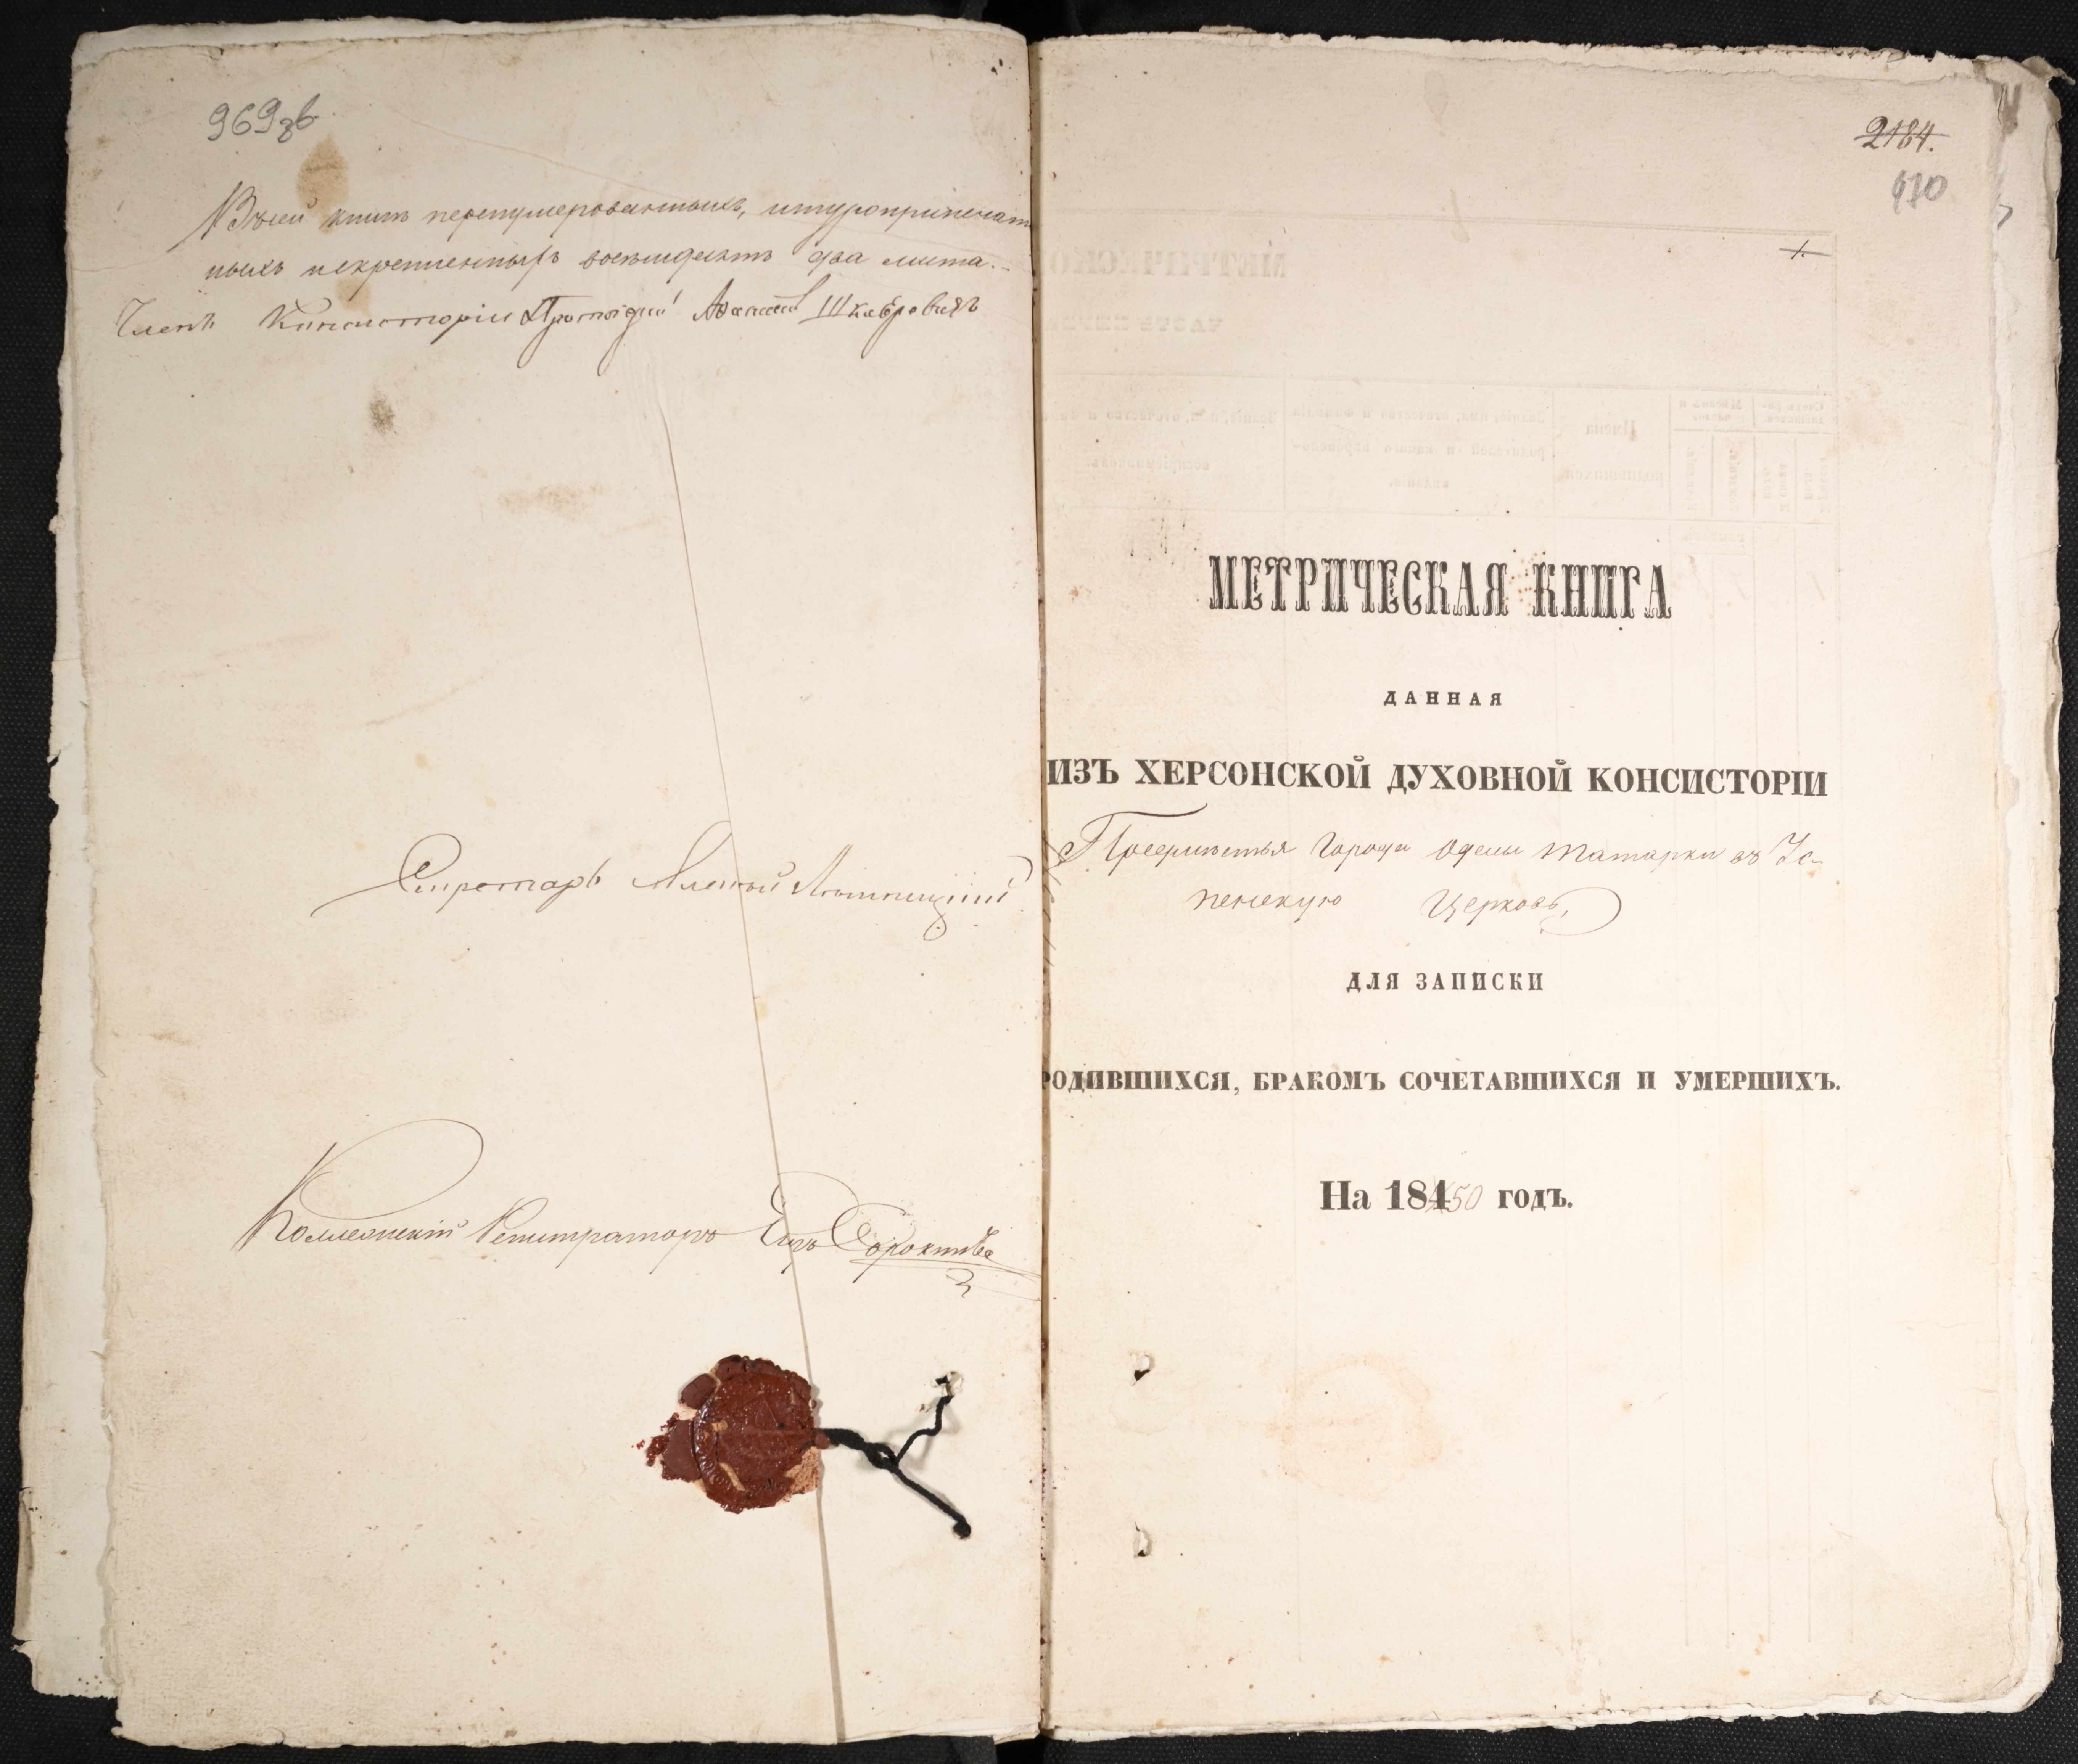 969 зв
Въ сей книгѣ перенумерованныхъ, шнуроприпечат
ныхъ искрепленныхъ восемдесятъ два листа.
Членъ Консисторіи Протоіерей Шкавровичъ
Секретарь
Коллежскій Регистраторъ
2184.
970
1.
МЕТРИЧЕСКАЯ КНИГА
ДАННАЯ
ИЗЪ ХЕРСОНСКОЙ ДУХОВНОЙ КОНСИСТОРІИ
города Одессы Татарки въ Ус-
пенскую Церковь,
ДЛЯ ЗАПИСКИ
РОДИВШИХСЯ, БРАКОМЪ СОЧЕТАВШИХСЯ И УМЕРШИХЪ.
На 184 50 годъ.